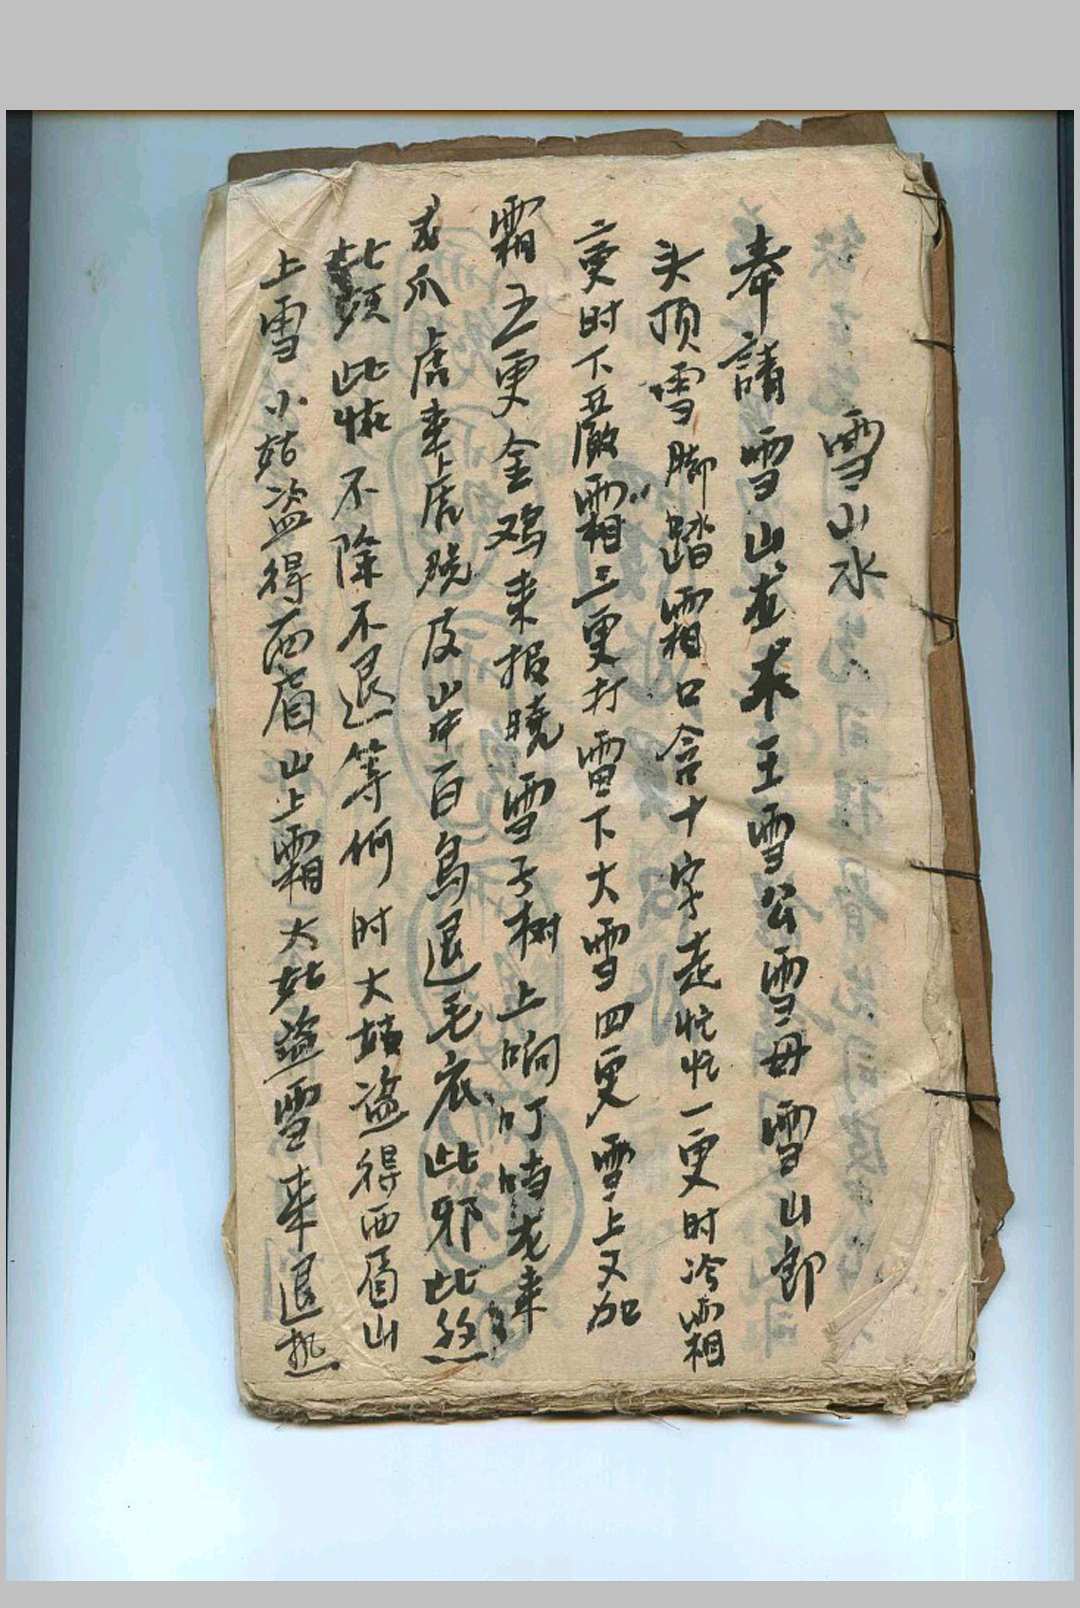 雪山水
奉請雪山老求王雪公雪母雪山郎
头顶雪脚踏霜口含十字走忙忙一更时冷霜
二更时下严霜三更打雪下大雪四更雪上又加
霜五更金鸡来报晓雪子树上响叮当龙来
龙爪虎来上虎脱皮山中百鸟退毛衣此邪此煞
此头此怅不除不退等何时大姑盗得西眉山
上雪小姑盗得西眉山上霜大姑盗雪来退热